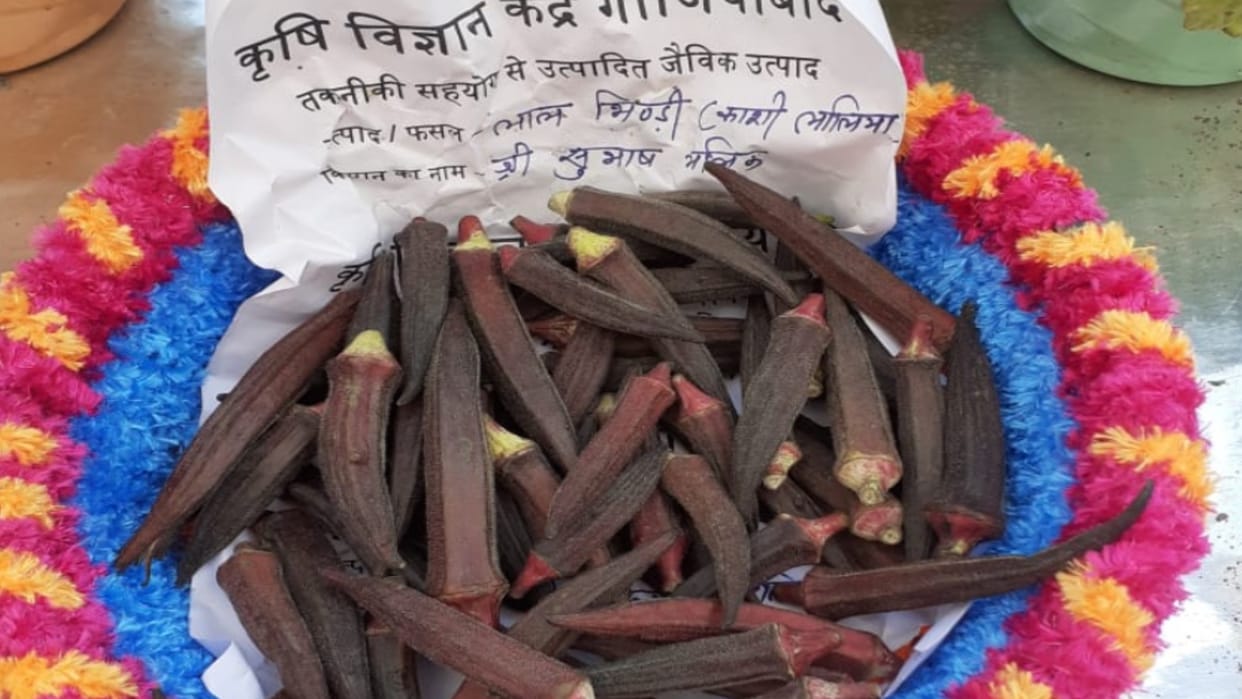 कृषि विज्ञान केंद्र गाजियाबाद
तकनीकी सहयोग से उत्पादित जैविक उत्पाद
त्पाद / फसल - लाल भिण्डी (काशी लालिमा
किसान का नाम - श्री सुभाष मलिक
कृ